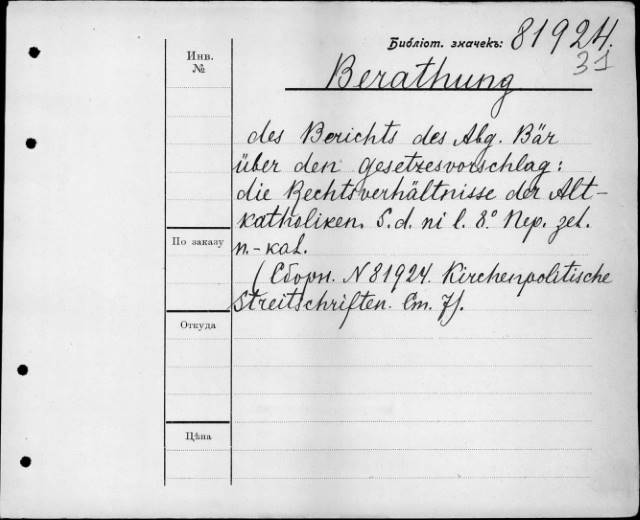 Библіот. значекъ: 81924.
31
Инв.
№
Berathung
des Berichts des Abg. Bär
über den gesetzesvorschlag:
die Rechtsverhältnisse der Alt-
katholiken. S. d. ni l. 8° Пер. зел.
п.-кал.
(Сборн. N 81924. Kirchenpolitische
Streitschriften. См. 7).
По заказу
Откуда
Цѣна